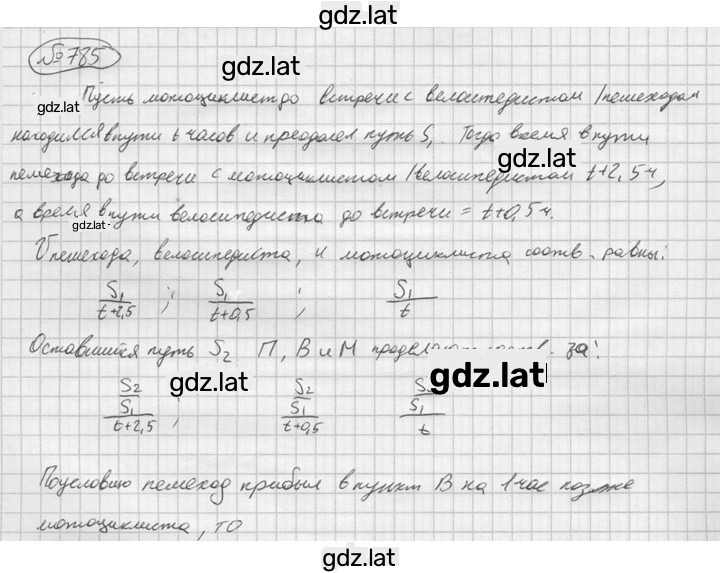 gdz.lat
№785
gdz.lat
Пусть мотоциклист до встречи с велосипедистом /пешеходом
gdz.lat
находился в пути t часов и преодолел путь S₁. Тогда время в пути
gdz.lat
пешехода до встречи с мотоциклистом /велосипедистом t+2,5 ч,
а время в пути велосипедиста до встречи = t+0,5 ч.
gdz.lat
V пешехода, велосипедиста, и мотоциклиста соотв. равны:
S₁/(t+2,5) ; S₁/(t+0,5) ; S₁/t
Оставшийся путь S₂ П, В и М за:
gdz.lat gdz.lat
S₂/(S₁/(t+2,5)) ; S₂/(S₁/(t+0,5)) S₂/(S₁/t)
По условию пешеход прибыл в пункт В на 1 час позже
мотоциклиста, то
gdz.lat